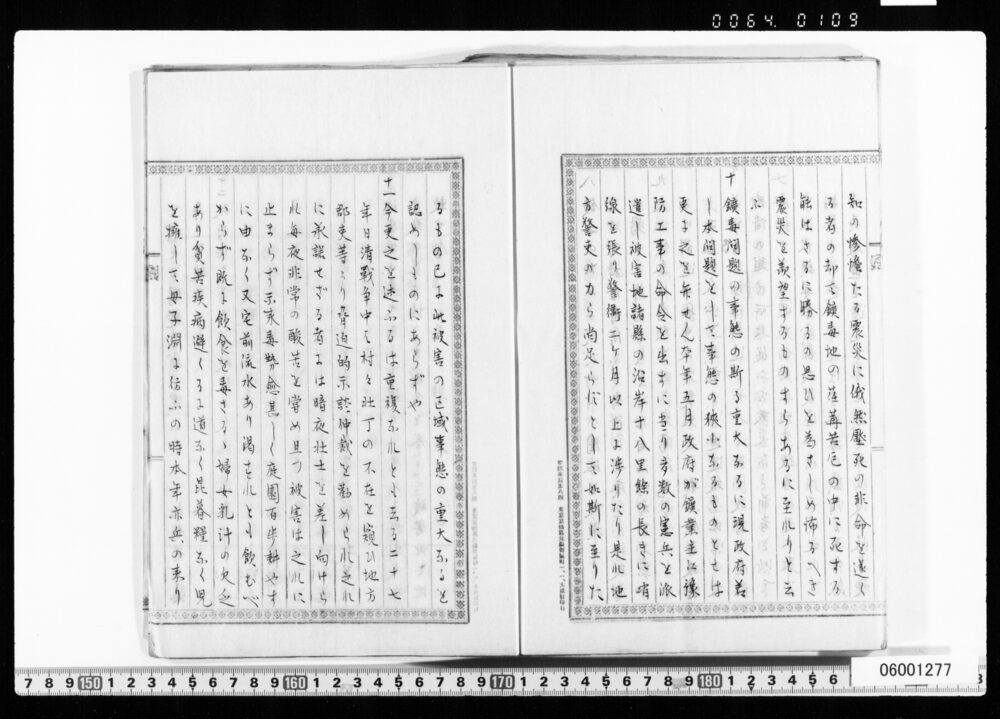 0064 0109
知の惨憺たる震災に俄然壓死の非命を遂く
る者の却て鑛毒地の荏苒苦毒の中に死する
能はさるに勝るの思ひを為さしめ怖るへき
震災を羨望するものすらあるに至れりと云
ふ
十 鑛毒問題の事態の斯る重大なるに現政府若
し本問題として事態の狭小なるものとせは
更に之を問はんな年五月政府が鑛業主に豫
防工事の命令を出すに當り多数の憲兵を派
遣し被害地諸縣の沿岸十八里餘の長きに哨
線を張り警衛二ヶ月以上に渉りたり是れ地
方警吏の力ら尚足らずとして如斯に至りた
るもの已に此被害の区域事態の重大なると
認めしものにあらずや
十一 今更之を述ふるは重複なれとも去る二十七
年日清戦争中は村々壮丁の不在を窺ひ地方
郡吏等より脅迫的示談仲裁を勧められ之れ
に承諾せざる者には暗夜壮士を差し向けら
れ毎夜非常の酸苦を嘗め且つ被害は之れに
止まらず示来毒勢愈甚しく庭園百歩耕やす
に由なく又宅前流水あり渇すれとも飲むべ
からず既に飲食を毒さるゝ婦女乳汁の欠乏
あり貧苦疾病避くるに道なく昆暮糧なく児
を擁して母子淵に彷ふの時本年亦兵の来り
7 8 9 150 1 2 3 4 5 6 7 8 9 160 1 2 3 4 5 6 7 8 9 170 1 2 3 4 5 6 7 8 9 180 1 2 3 4 5 6
06001277